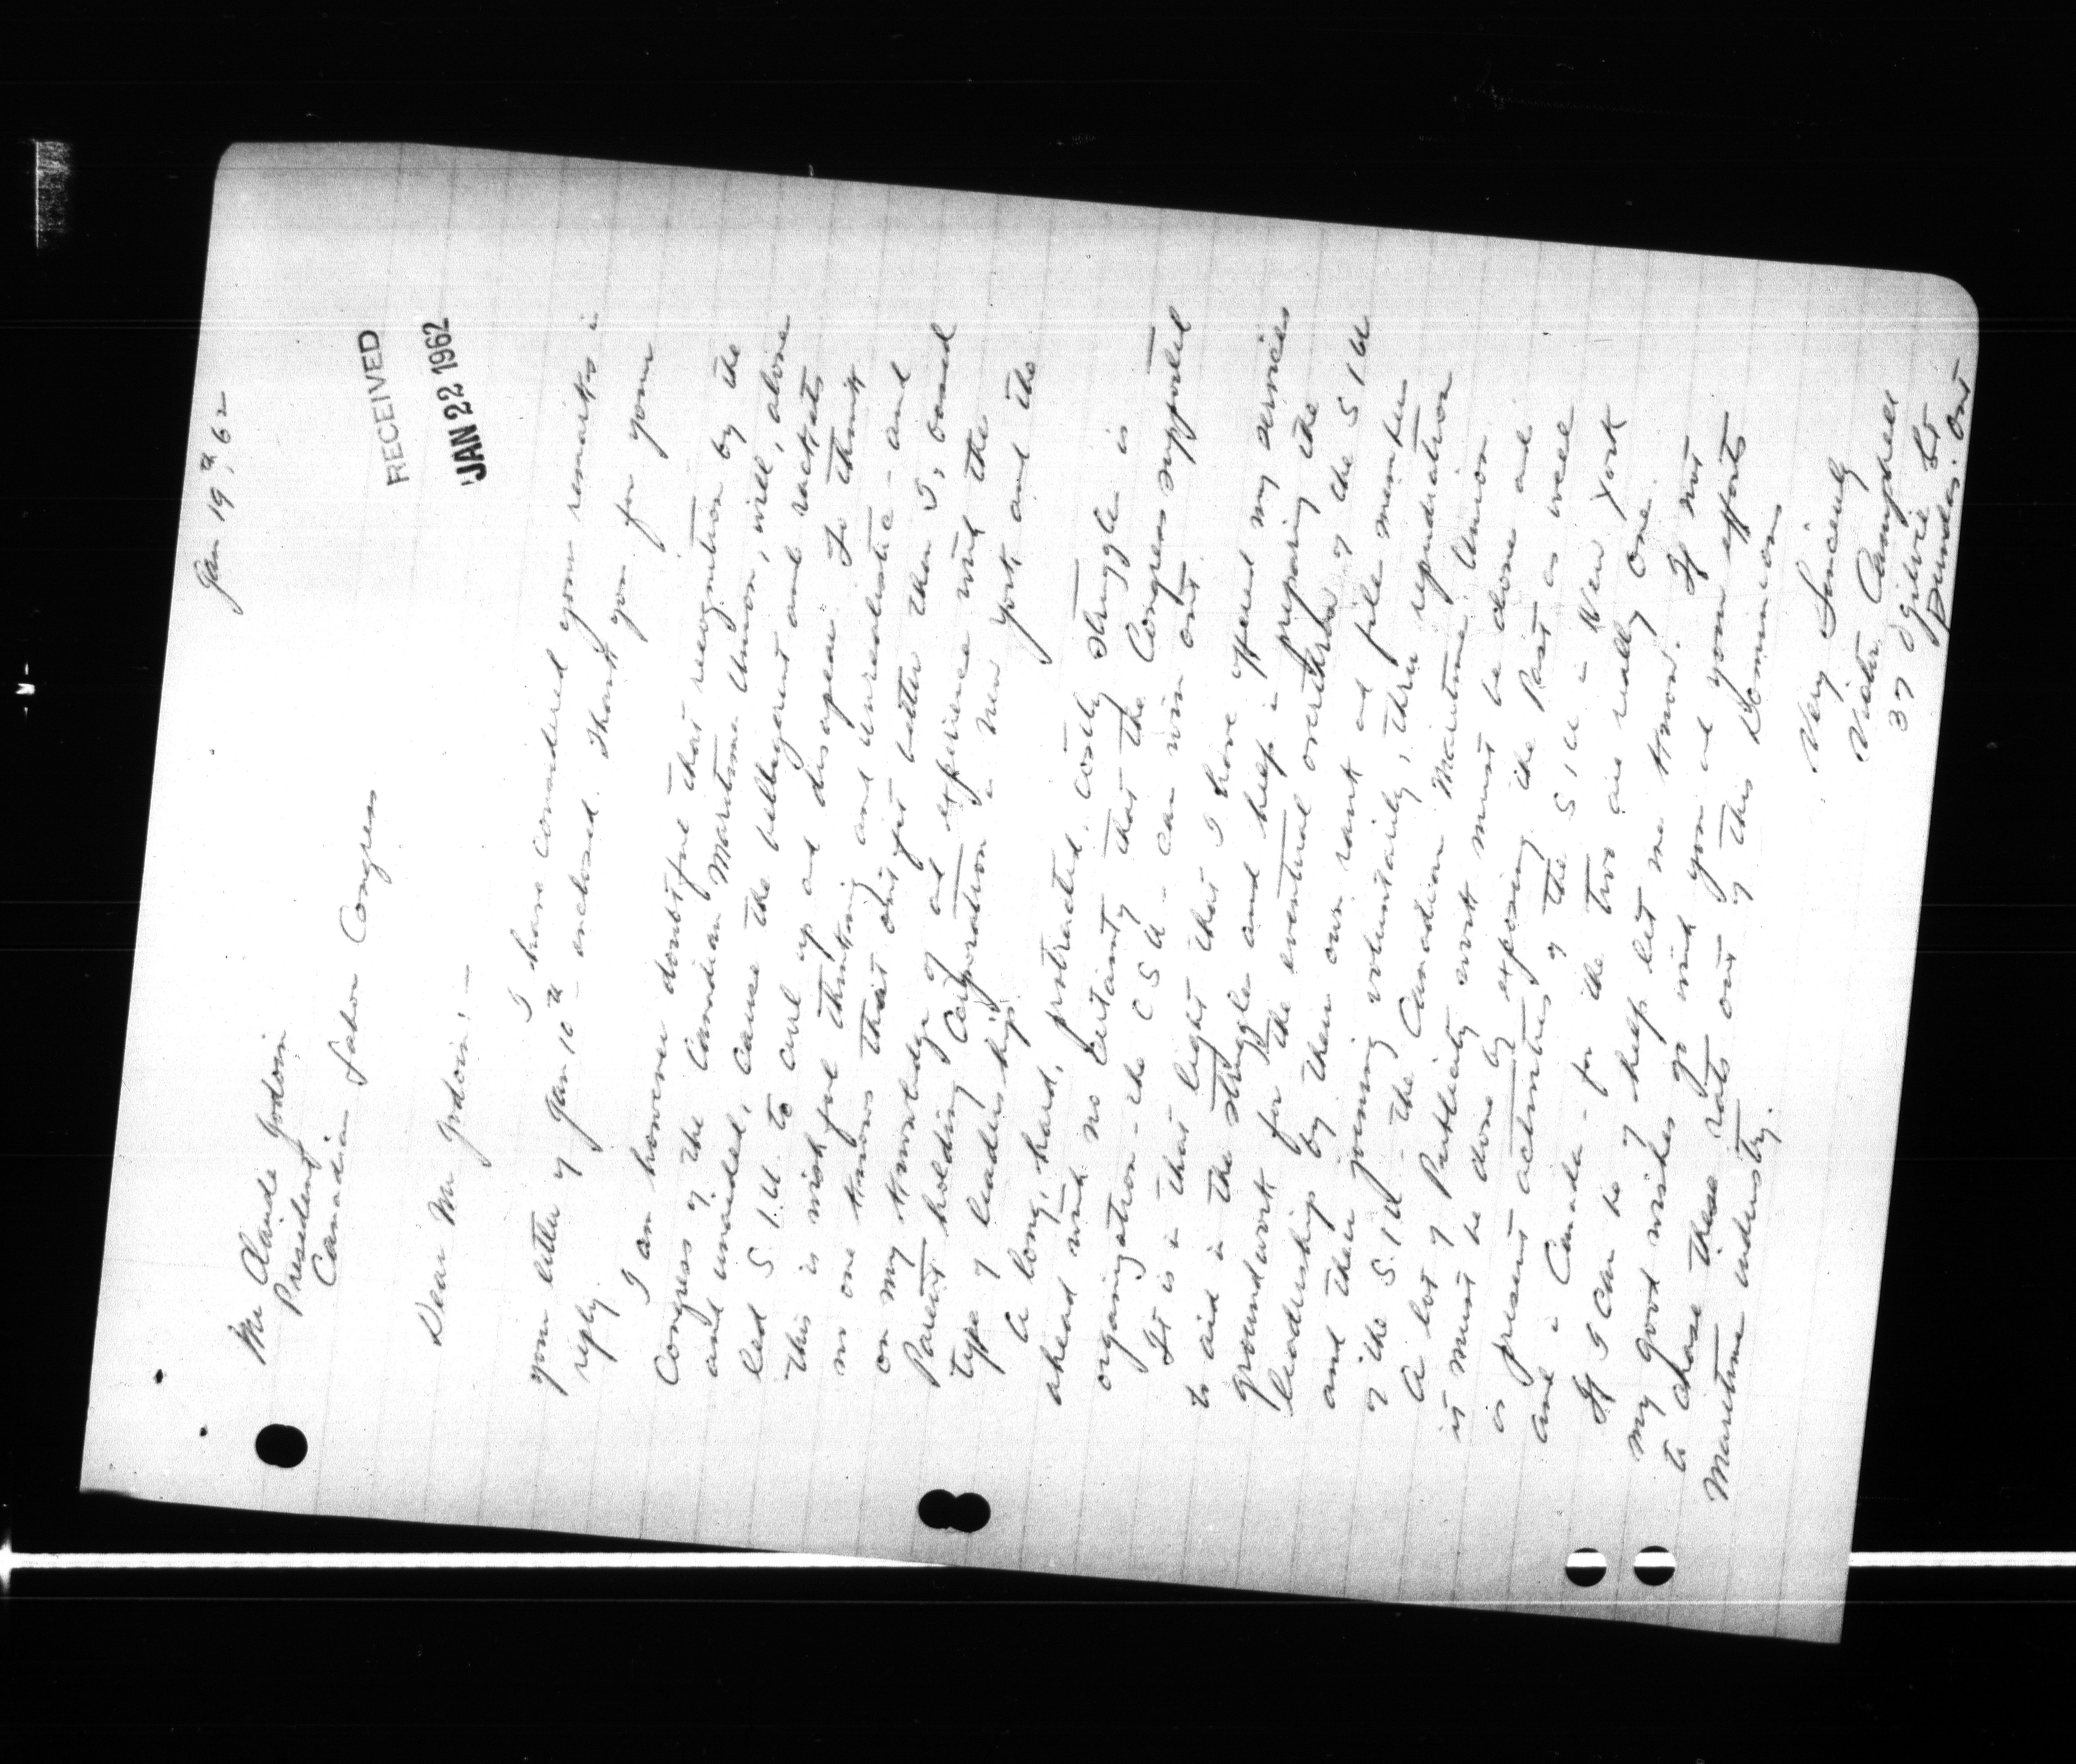 Jan 19, 62
Mr Claude Jodoin,
President
Canadian Labor Congress
RECEIVED
JAN 22 1962
Dear Mr Jodoin: —
I have considered your remarks in
your letter of Jan 10th - enclosed. Thank you for your
reply.
I am however doubtful that recognition by the
Congress of the Canadian Maritime Union, will, alone
and unaided, cause the belligerent and rackets
led S.I.U. to curl up and disappear. To think
this is wishful thinking and unrealistic - and
no one knows that outfit better than I, based
on my knowledge of and experience with the
Parent holding Corporation in New York and the
type of leadership.
A long, hard, protracted, costly struggle is
ahead with no certainty that the Congress supported
organization - the CSU - can win out.
It is in that light that I have offered my services
to aid in the struggle and help in preparing the
groundwork for the eventual overthrow of the SIU
leadership by their own rank and file members
and their joining voluntarily, their repudiation
of the S.I.U - the Canadian Maritime Union.
A lot of Publicity work must be done and
it must be done by exposing the Past as well
as present activities of the SIU in New York
and in Canada - for the two are really one.
If I can be of help let me know. If not
my good wishes go with you and your efforts
to chase these rats out of this Dominions
Maritime industry.
Very Sincerely
Victor Campbell
37 Ogilvie St
Dundas. Ont